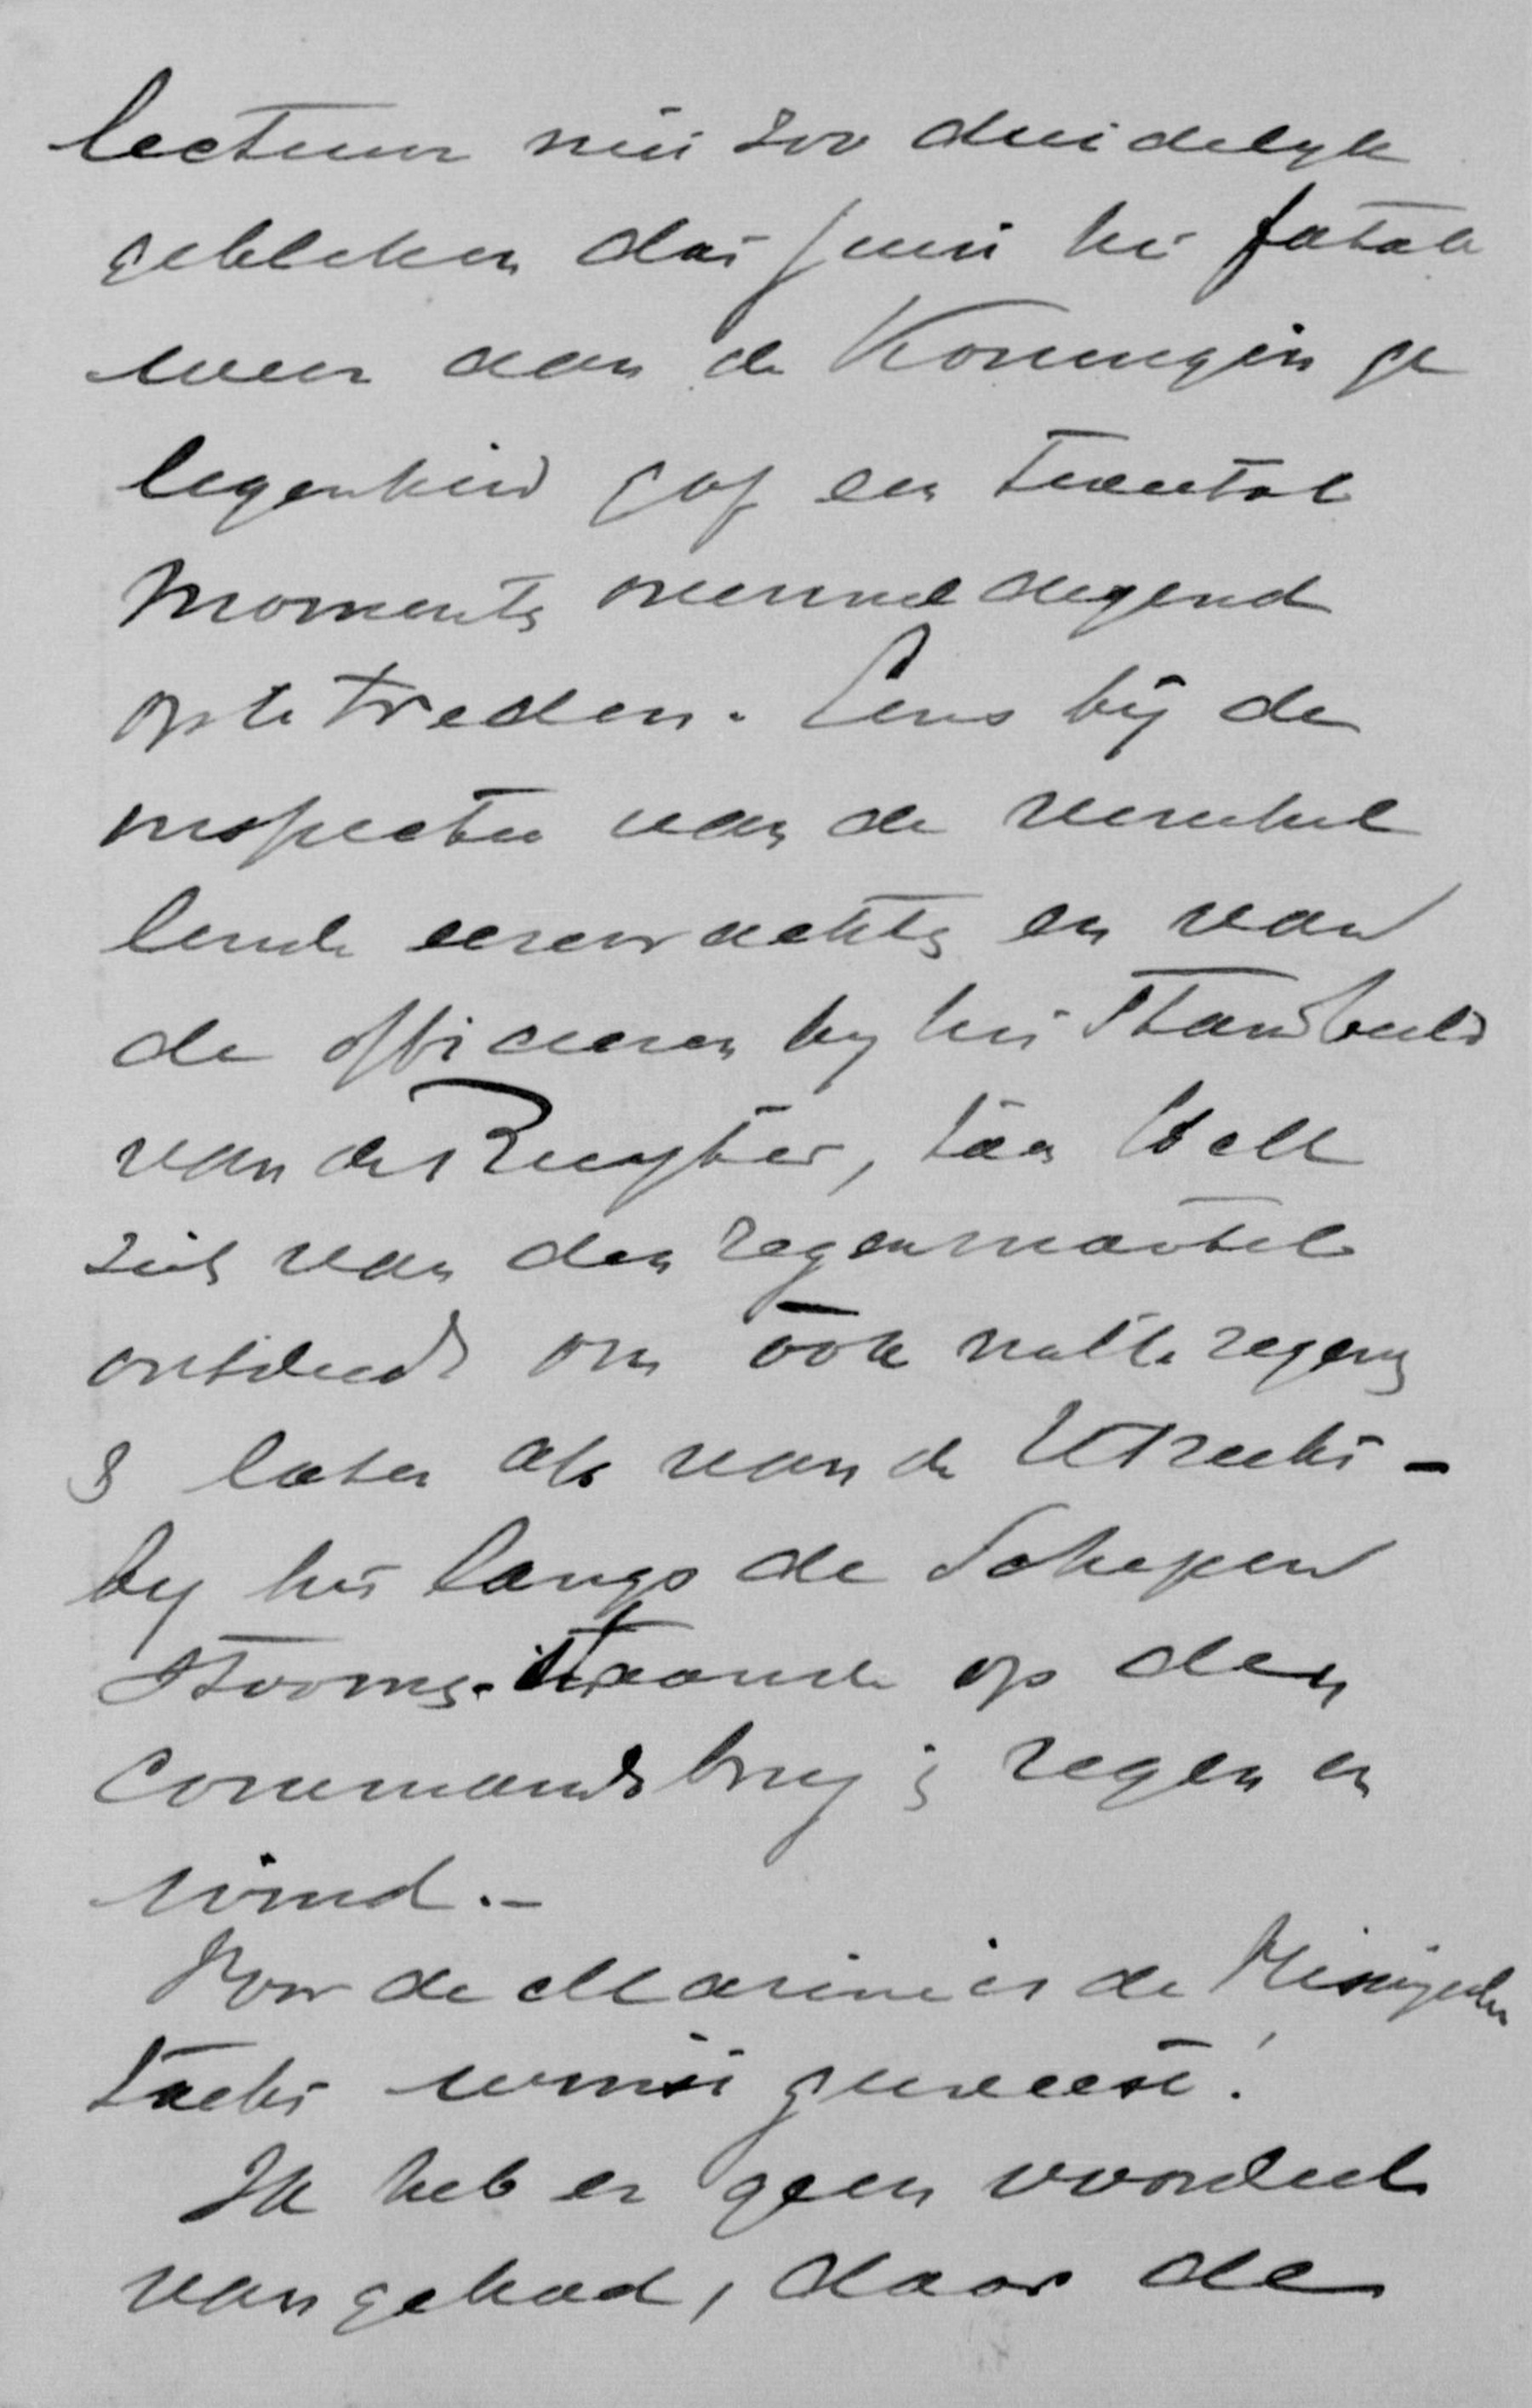 lectuur niet zoo duidelyk
gebleken dat juist het fatale
weer aan de Koningin ge
legenheid gaf een tweetal
momenten overweldigend
op te treden. Eens bij de
inspectie van de verschil
lende eerewachten en van
de officieren by het Standbeeld
van de Ruyter, toen Hell
zich van den regenmantel
ontdeed om ook nat te regenen
& later als van de Utrecht -
by het langs de Schepen
stoomen. staande op den
commandobrug in regen en
wind. -
Voor de Marine is de Vlissingsche
tocht winst geweest!
Ik heb er geen voordeel
van gehad, daar de